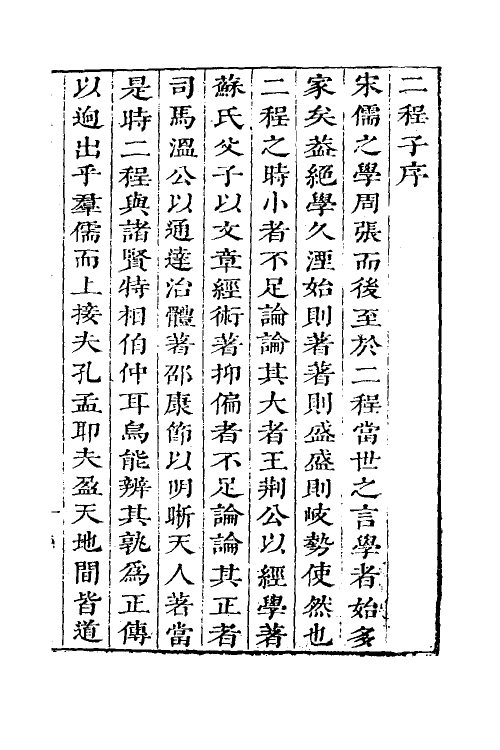 二程子序
宋儒之學周張而後至於二程當世之言學者始多
家矣葢絕學久湮始則著著則盛盛則岐勢使然也
二程之時小者不足論論其大者王荆公以經學著
蘇氏父子以文章經術著抑偏者不足論論其正者
司馬溫公以通達治體著邵康節以明晰天人著當
是時二程與諸賢特相伯仲耳烏能辨其孰爲正傳
以逈出乎羣儒而上接夫孔孟耶夫盈天地間皆道